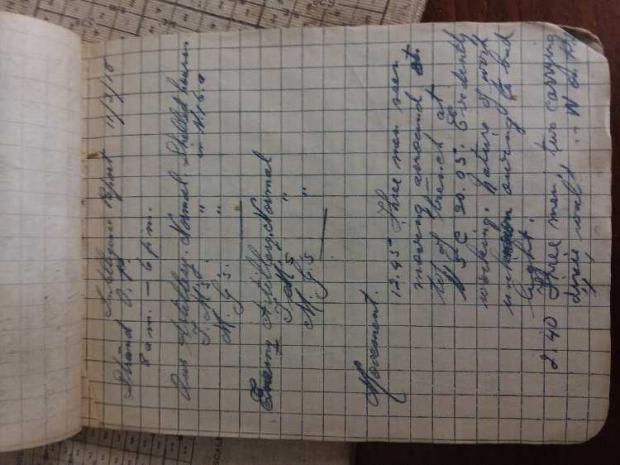 Strand O.P. Intelligence Report 11/3/18
8 a.m. – 6 p.m.
Our Artillery. Normal Shelled
T.M's. " in N.
M.G's. "
Enemy Artillery. Normal
T.M's "
M.G's "
Movement.
12.45 Three men seen
moving around at
top of trench at
N 5 C 90.05. Evidently
working. Nature of work
unknown owing to bad
light.
2.40 Three men, two carrying